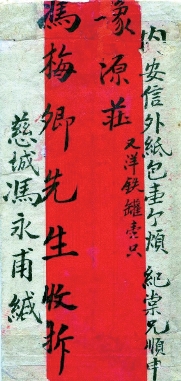 內安信外紙包壹个煩 紀棠兄順申
又洋鉄罐壹只
源莊
馮梅卿先生收拆
慈城馮永甫緘